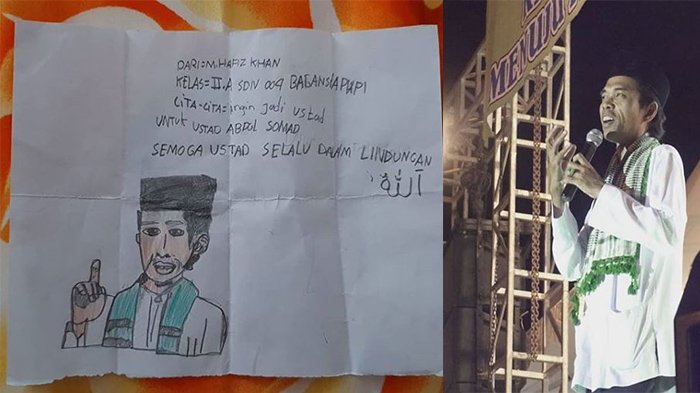 DARI=M.HAFIZ KHAN
KELAS=II.A SDN 009 BAGANSIAPIAPI
CITA-CITA=ingin jadi ustad
UNTUK USTAD ABDOL SOMAD
SEMOGA USTAD SELALU DALAM LINDUNGAN
الله
MENUJU